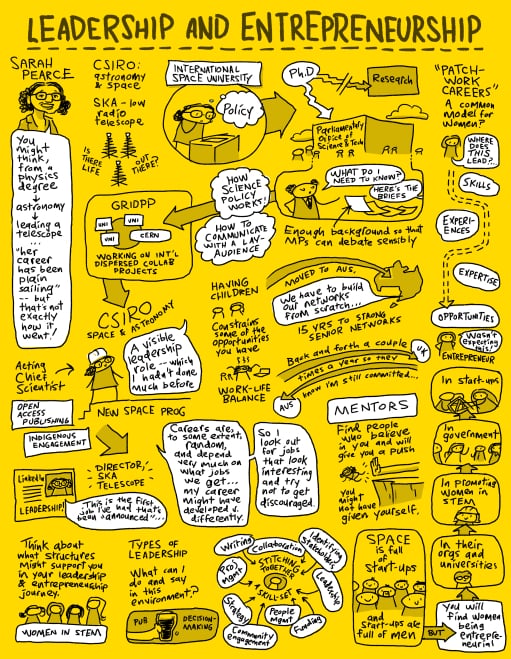 LEADERSHIP AND ENTREPRENEURSHIP
SARAH
PEARCE
You
might
think,
from a
physics
degree
astronomy
leading a
telescope
...
"her
career
has been
plain
sailing"
-- but
that's not
exactly
how it
went!
CSIRO:
astronomy
& space
SKA - low
radio
telescope
IS
THERE
LIFE
OUT
THERE?
INTERNATIONAL
SPACE UNIVERSITY
Policy
Ph.D
Research
Parliamentary
Office of
Science & Tech
WHAT DO I
NEED TO KNOW?
HERE'S THE
BRIEFS
Enough background so that
MPs can debate sensibly
HOW
SCIENCE
POLICY
WORKS!
HOW TO
COMMUNICATE
WITH A LAY-
AUDIENCE
GRIDPP
UNI
UNI
UNI
CERN
WORKING ON INT'L
DISPERSED COLLAB
PROJECTS
CSIRO
SPACE & ASTRONOMY
Acting
Chief
Scientist
A visible
leadership
role -- which
I hadn't done
much before
NEW SPACE PROG
HAVING
CHILDREN
Constrains
some of the
opportunities
you have
WORK-LIFE
BALANCE
MOVED TO AUS,
We have to build
our networks
from scratch...
15 YRS TO STRONG
SENIOR NETWORKS
UK
Back and forth a couple
times a year so they
know I'm still committed...
AUS
OPEN
ACCESS
PUBLISHING
INDIGENOUS
ENGAGEMENT
LinkedIn
LEADERSHIP!
"DIRECTOR,
SKA
TELESCOPE"
"This is the first
job I've had that's
been announced"...
Careers are,
to some extent,
random,
and depend
very much on
what jobs
we get...
my career
might have
developed v.
differently.
So I
look out
for jobs
that look
interesting
and try
not to get
discouraged.
MENTORS
Find people
who believe
in you and will
give you a push
you
might
not have
given yourself.
Think about
what structures
might support you
in your leadership
& entrepreneurship
journey.
WOMEN IN STEM
TYPES OF
LEADERSHIP
What can I
do and say
in this
environment?
PUB
DECISION-
MAKING
STITCHING
TOGETHER
A
SKILL-SET
Writing
Collaboration
Identifying
stakeholders
Leadership
Funding
People
Mgmt
Community
engagement
Strategy
Proj
Mgmt
SPACE
is full
of
start-ups
and
start-ups are
full of men
BUT
"PATCH-
WORK
CAREERS"
A common
model for
women?
WHERE
DOES
THIS
LEAD?..
SKILLS
EXPERI-
ENCES
EXPERTISE
OPPORTUNITIES
Wasn't
expecting
this!
ENTREPRENEUR
In start-ups
In
government
In promoting
women in
STEM
In their
orgs and
universities
You will
find women
being
entrepre-
neurial